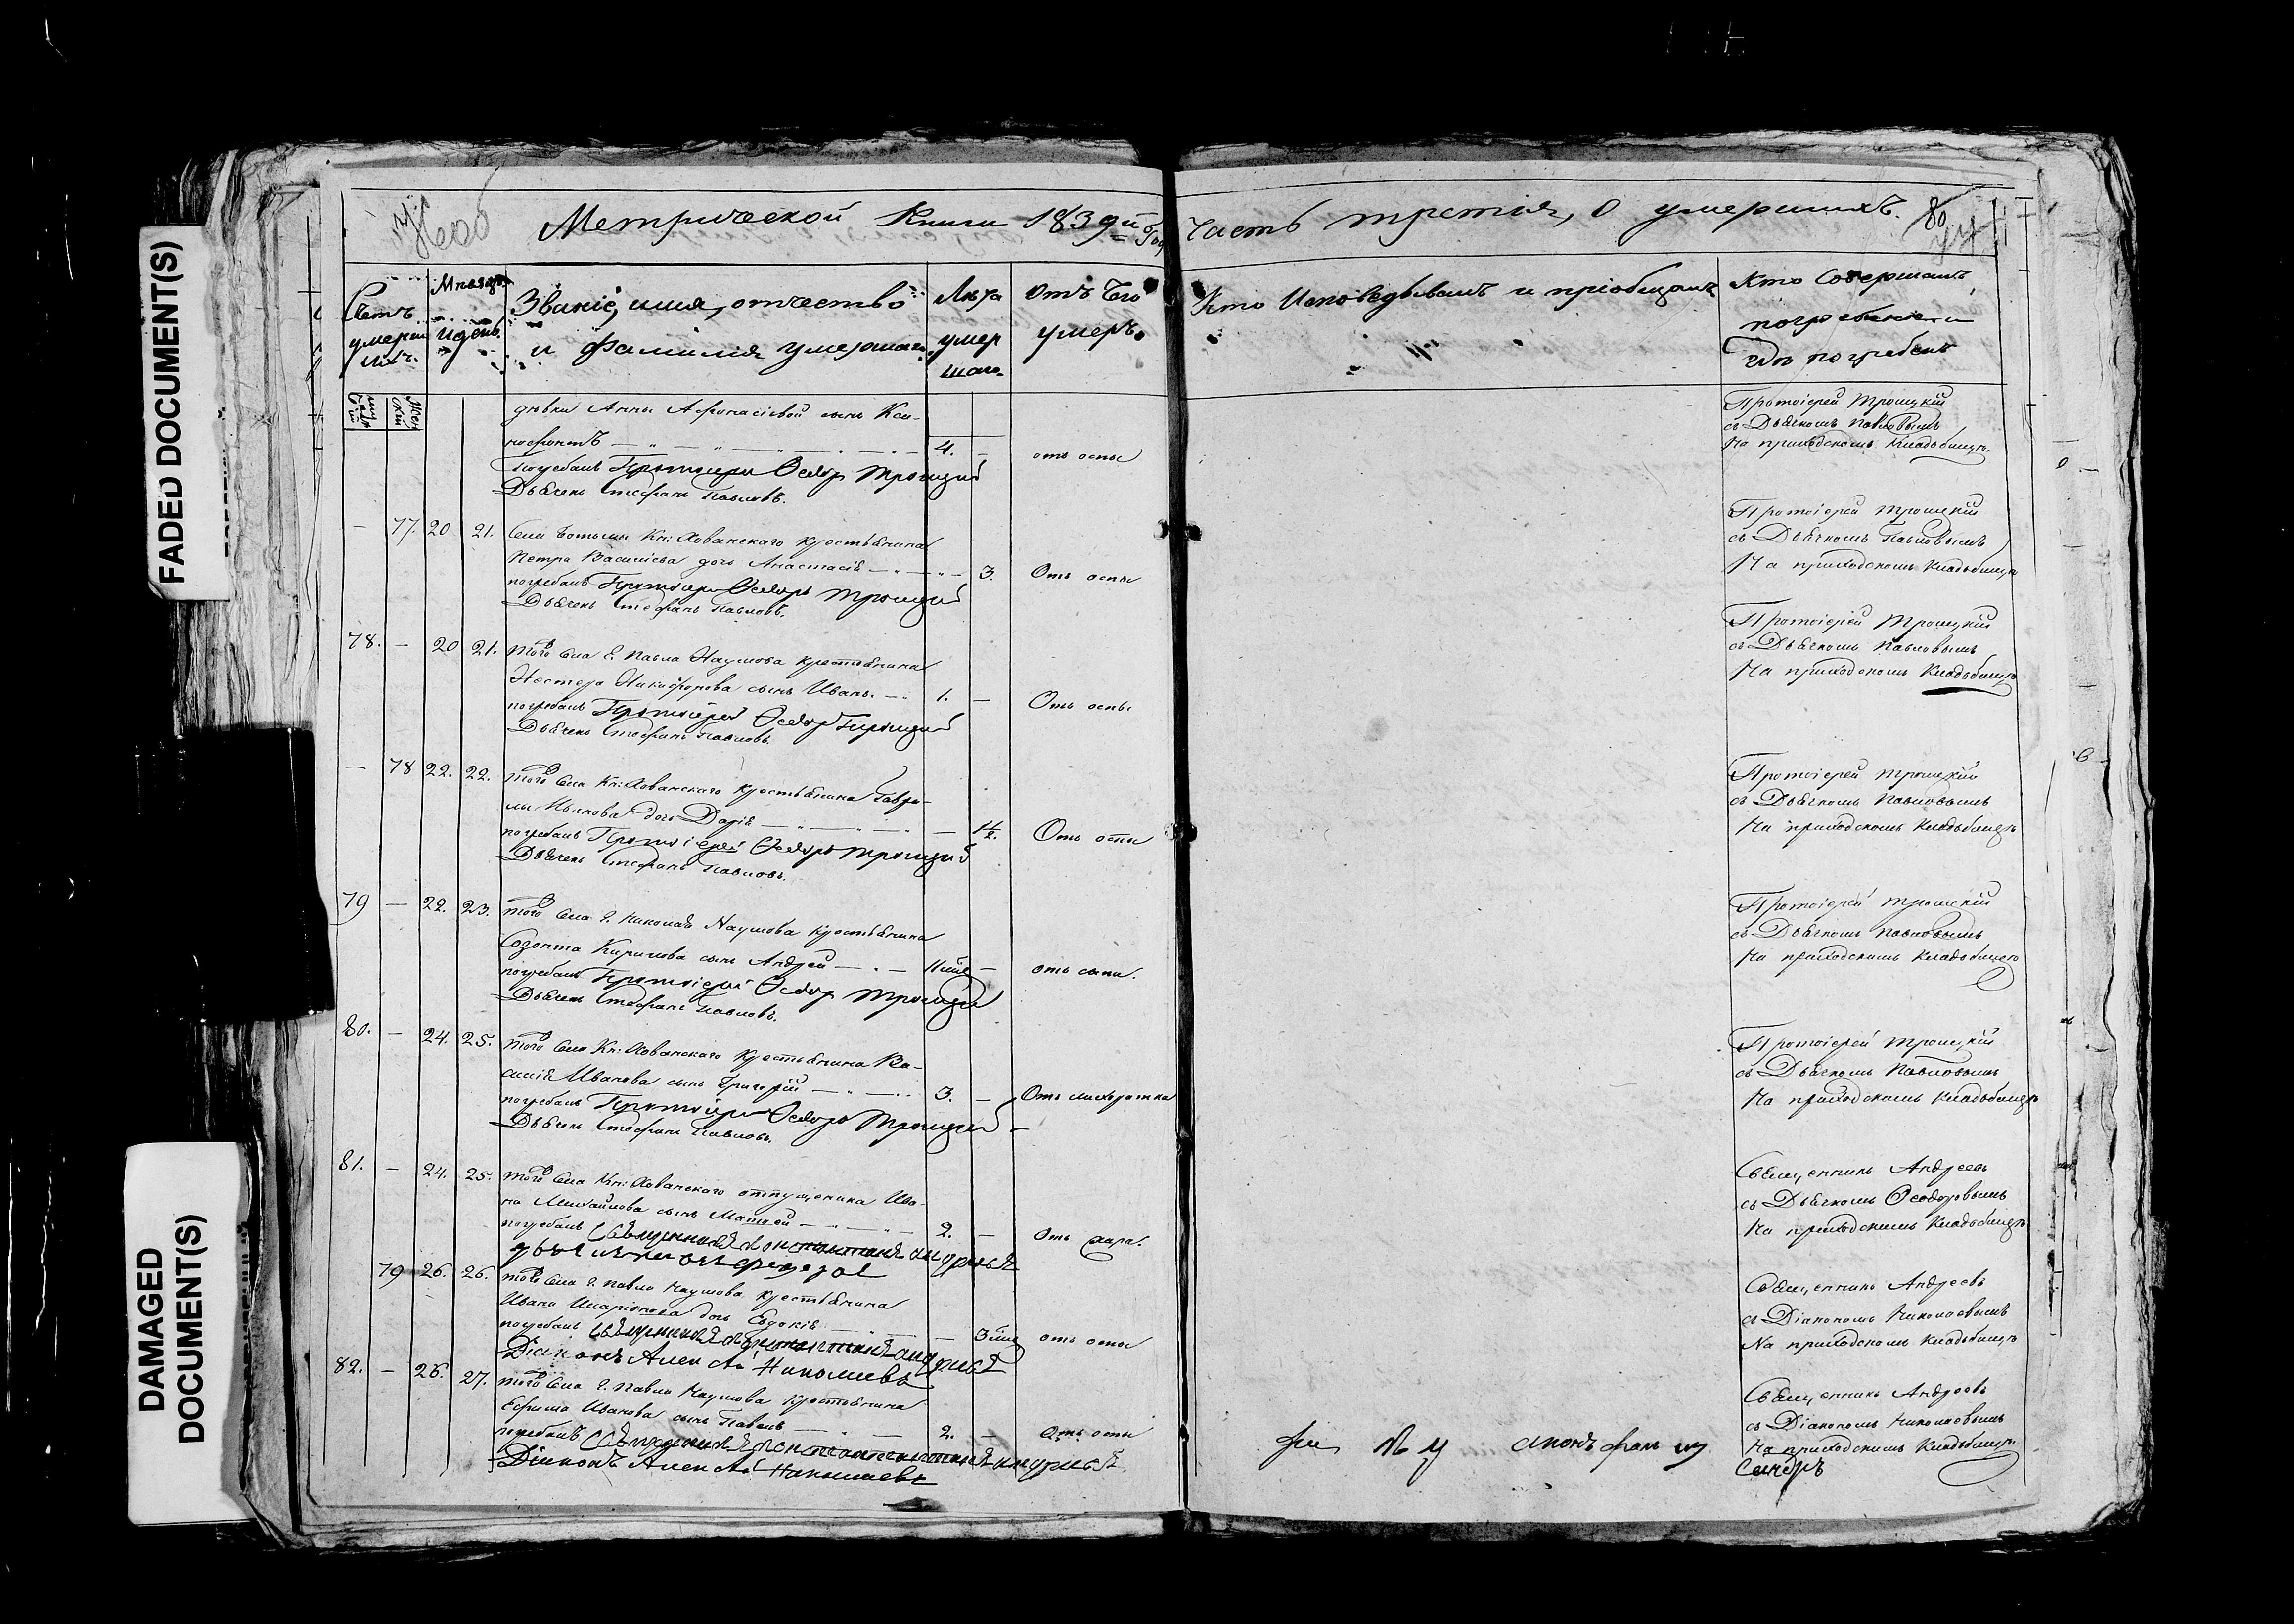 FADED DOCUMENT(S)
DAMAGED
DOCUMENT(S)
Метрической Книги 1839й Год
Часть третія, О умершихъ. 80
Счетъ умерших. Мѣсяцъ и день. Званіе, имя, отчество и фамилія умершаго. Лѣта умершаго. Отъ чего умеръ. Кто Исповѣдывалъ и пріобщалъ Кто Совершалъ погребеніе и гдѣ погребенъ
дѣвки Анны Афонасіевой сынъ Ксе-
нофонтъ 4. — отъ оспы
погребалъ Протоіерей Ѳеодоръ Троицкій
Дьячекъ Стефанъ Павловъ.
Протоіерей Троицкій
съ Дьячкомъ Павловымъ
На приходскомъ Кладбищѣ.
— 77. 20 21. Села Кн: Хованскаго крестьянина
Петра Васильева дочь Анастасія — 3. Отъ оспы
погребалъ Протоіерей Ѳеодоръ Троицкій
Дьячекъ Стефанъ Павловъ.
Протоіерей Троицкій
съ Дьячкомъ Павловымъ
На приходскомъ Кладбищѣ
78. — 20 21. Того Села Г. Павла Наумова крестьянина
Нестера Никифорова сынъ Иванъ. 1. — Отъ оспы
погребалъ Протоіерей Ѳеодоръ Троицкій
Дьячекъ Стефанъ Павловъ.
Протоіерей Троицкій
съ Дьячкомъ Павловымъ
На приходскомъ Кладбищѣ
— 78 22. 22. Того Села Кн: Хованскаго крестьянина Гаври-
лы Иванова дочь Дарія — Отъ оспы
погребалъ Протоіерей Ѳеодоръ Троицкій
Дьячекъ Стефанъ Павловъ.
Протоіерей Троицкій
съ Дьячкомъ Павловымъ
На приходскомъ Кладбищѣ
79 — 22. 23. Того Села Г. Николая Наумова крестьянина
Созонта Кирилова сынъ Андрей — отъ сыпи.
погребалъ Протоіерей Ѳеодоръ Троицкій
Дьячекъ Стефанъ Павловъ.
Протоіерей Троицкій
съ Дьячкомъ Павловымъ
На приходскомъ Кладбищѣ
80. — 24. 25. Того Села Кн: Хованскаго Крестьянина Ва-
силія Иванова сынъ Григорій 3. — Отъ лихоратки
погребалъ Протоіерей Ѳеодоръ Троицкій
Дьячекъ Стефанъ Павловъ.
Протоіерей Троицкій
съ Дьячкомъ Павловымъ
На приходскомъ Кладбищѣ
81. — 24. 25. Того Села Кн: Хованскаго отпущеника Ива-
на Михайлова сынъ Матвей 2. — Отъ
погребалъ Священникъ Константинъ Андреевъ
Священникъ Андреевъ
съ Дьячкомъ Ѳеодоровымъ
На приходскомъ Кладбищѣ
79 26. 26. Того Села Г. Павла Наумова крестьянина
Ивана Иларіонова дочь Евдокія — отъ оспы
погребалъ Священникъ Константинъ Андреевъ
Діаконъ Алексѣй Николаевъ
Священникъ Андреевъ
съ Діакономъ Николаевымъ
На приходскомъ Кладбищѣ
82. — 26. 27. Того Села Г. Павла Наумова крестьянина
Ефима Иванова сынъ Павелъ 2. — Отъ оспы
погребалъ Священникъ Константинъ Андреевъ
Діаконъ Алексѣй Николаевъ
Священникъ Андреевъ
съ Діакономъ Николаевымъ
На приходскомъ Кладбищѣ.